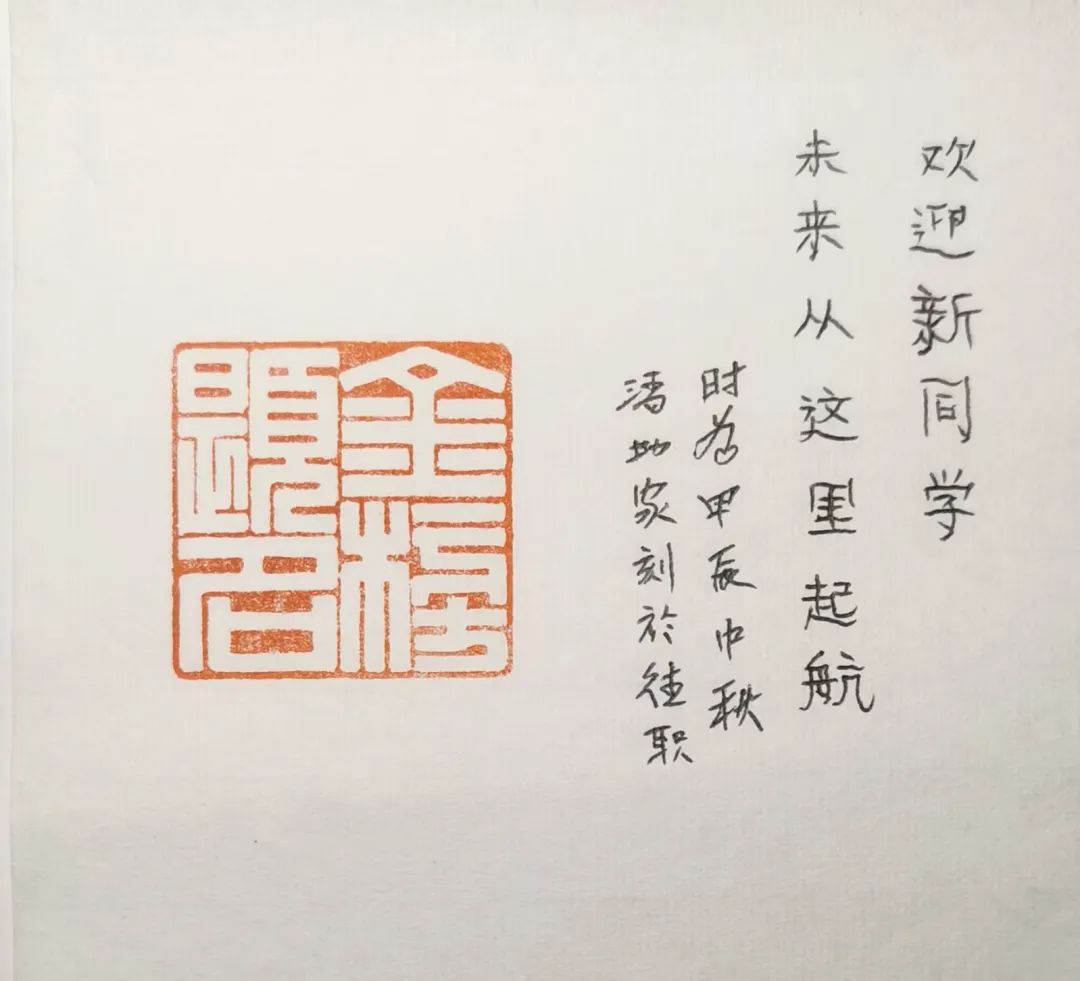 欢迎新同学
未来从这里起航
时为甲辰中秋
家刻於 职
金榜
題名